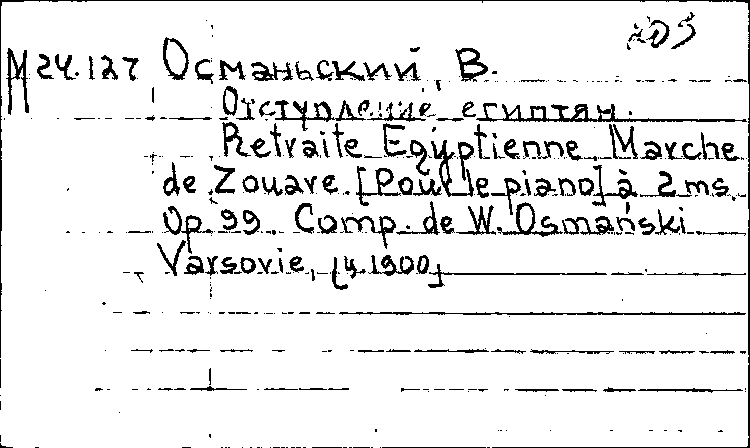 205
М 24.127 Османьский, В.
Отступление египтян.
Retraite Egyptienne. Marche
de Zouave. [Pour le piano] à 2 ms.
Op. 99. Comp. de W. Osmański.
Varsovie, [ц. 1900]